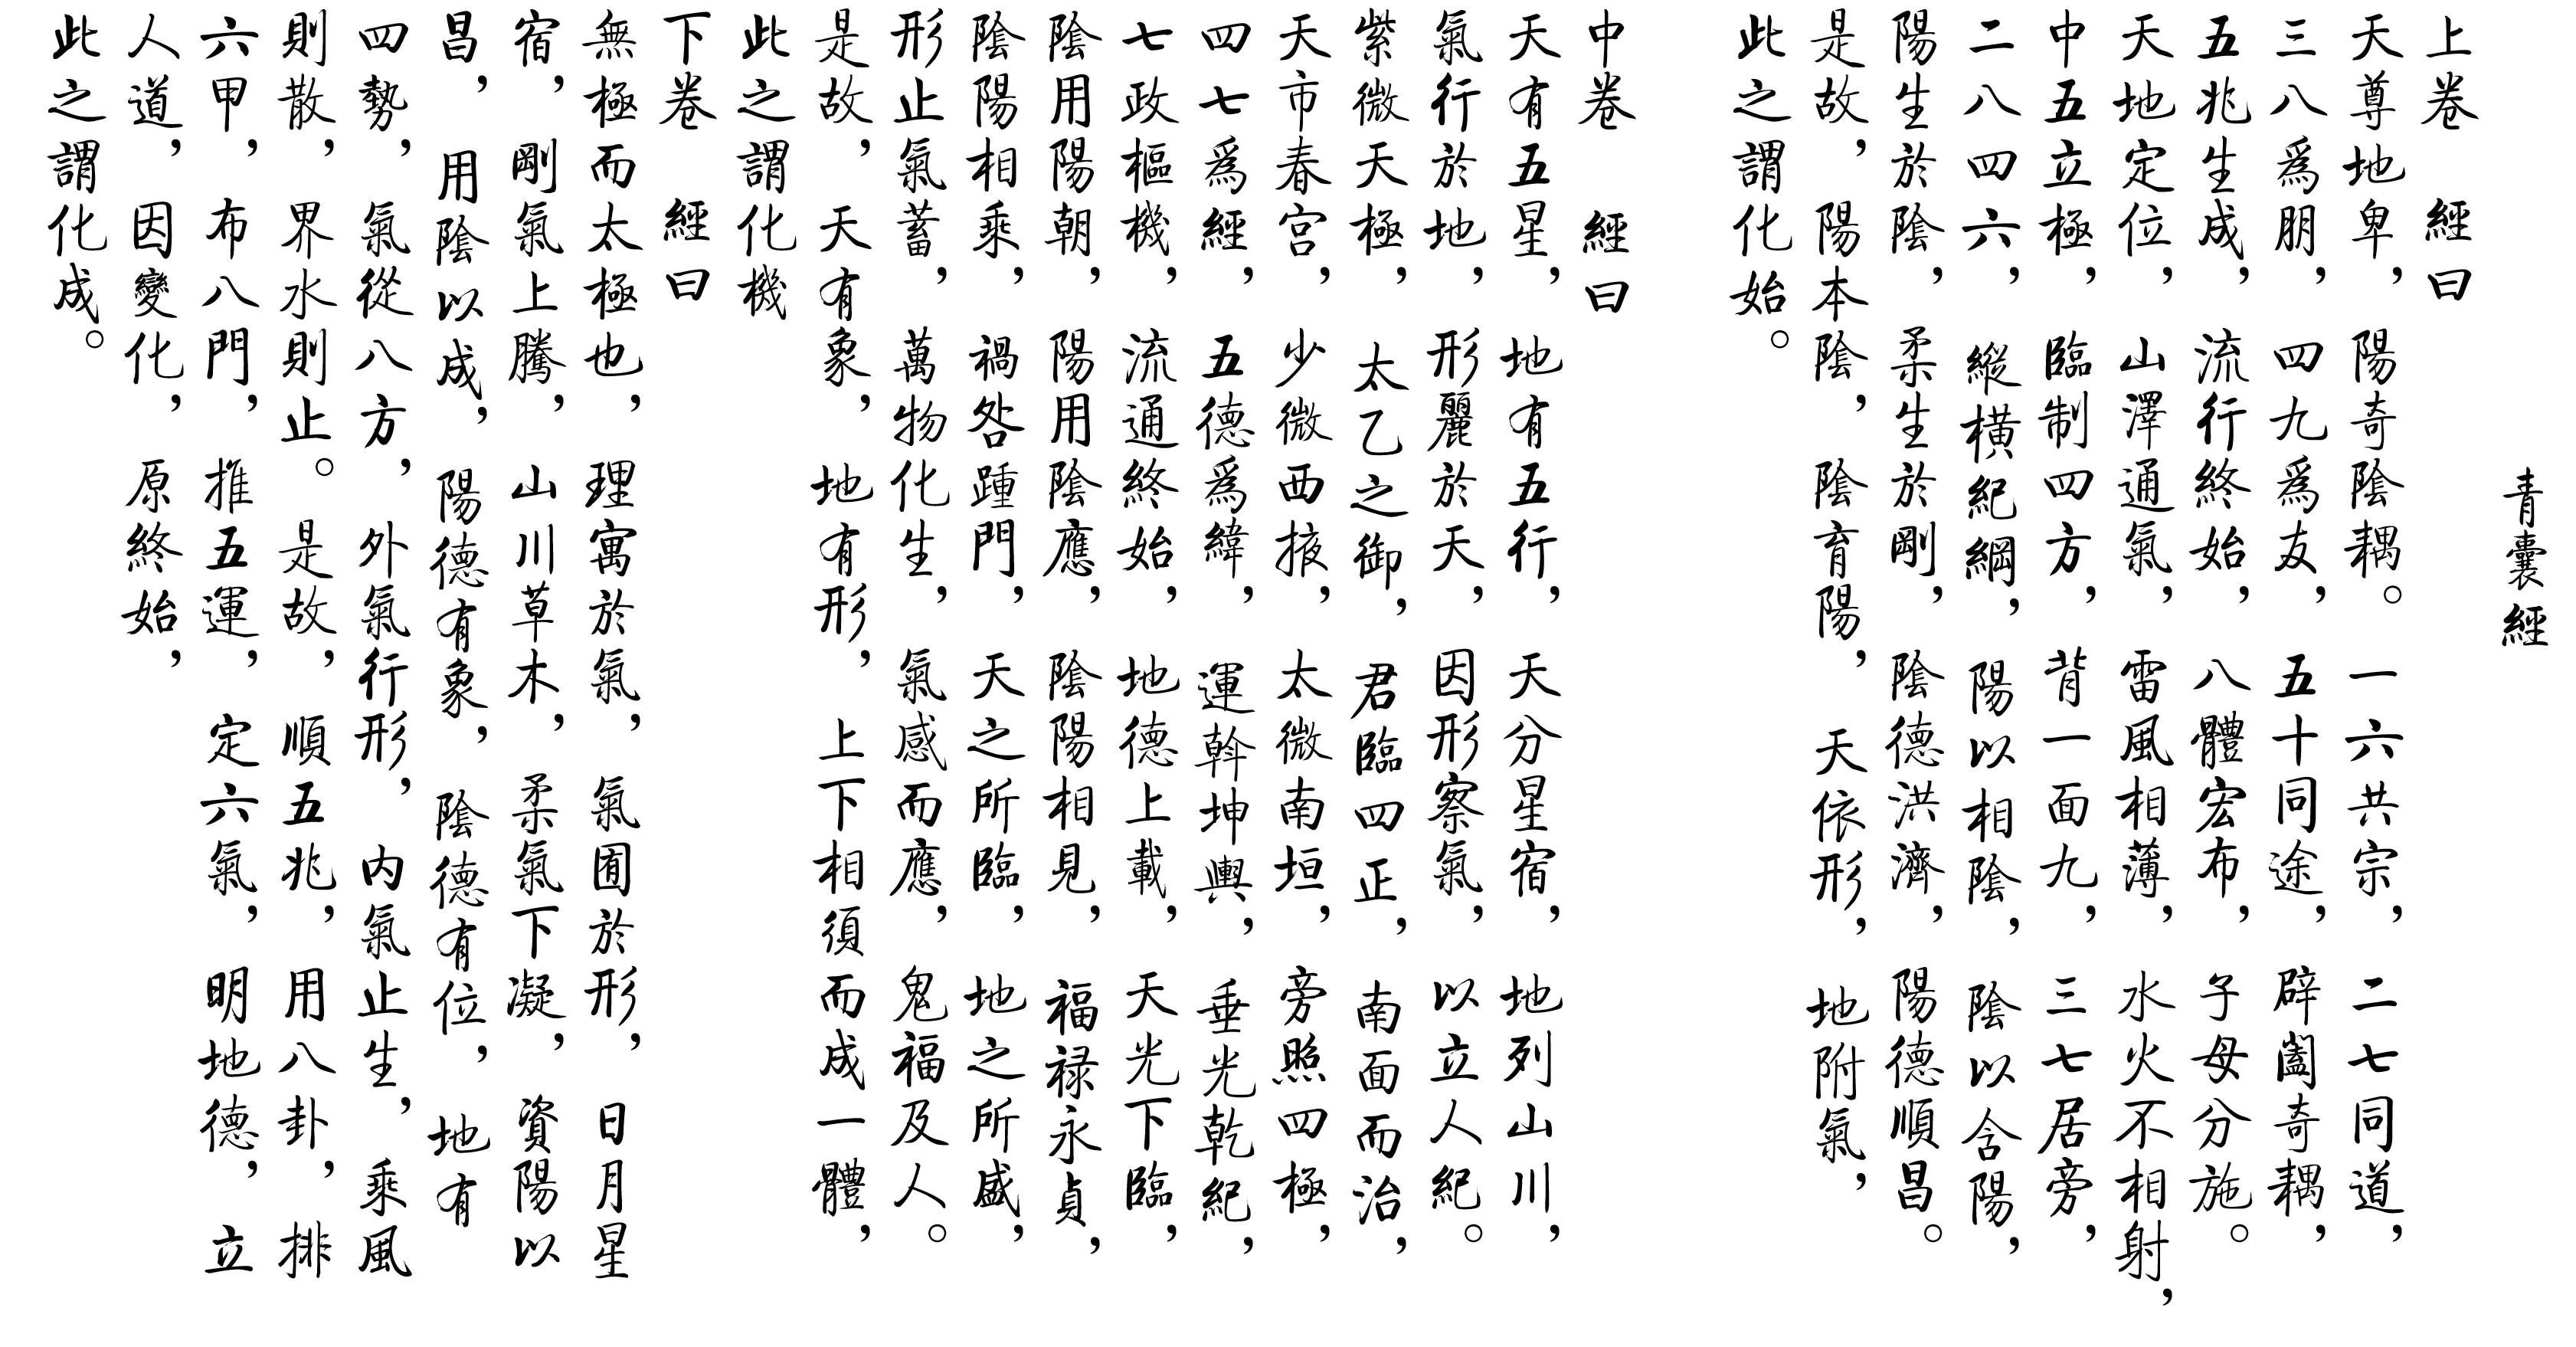 青囊經
上卷 經曰
天尊地卑，陽奇陰耦。一六共宗，二七同道，
三八爲朋，四九爲友，五十同途，辟闔奇耦，
五兆生成，流行終始，八體宏布，子母分施。
天地定位，山澤通氣，雷風相薄，水火不相射，
中五立極，臨制四方，背一面九，三七居旁，
二八四六，縱橫紀綱，陽以相陰，陰以含陽，
陽生於陰，柔生於剛，陰德洪濟，陽德順昌。
是故，陽本陰，陰育陽，天依形，地附氣，
此之謂化始。
中卷 經曰
天有五星，地有五行，天分星宿，地列山川，
氣行於地，形麗於天，因形察氣，以立人紀。
紫微天極，太乙之御，君臨四正，南面而治，
天市春宮，少微西掖，太微南垣，旁照四極，
四七爲經，五德爲緯，運斡坤輿，垂光乾紀，
七政樞機，流通終始，地德上載，天光下臨，
陰用陽朝，陽用陰應，陰陽相見，福祿永貞，
陰陽相乘，禍咎踵門，天之所臨，地之所盛，
形止氣蓄，萬物化生，氣感而應，鬼福及人。
是故，天有象，地有形，上下相須而成一體，
此之謂化機
下卷 經曰
無極而太極也，理寓於氣，氣囿於形，日月星
宿，剛氣上騰，山川草木，柔氣下凝，資陽以
昌，用陰以成，陽德有象，陰德有位，地有
四勢，氣從八方，外氣行形，內氣止生，乘風
則散，界水則止。是故，順五兆，用八卦，排
六甲，布八門，推五運，定六氣，明地德，立
人道，因變化，原終始，
此之謂化成。